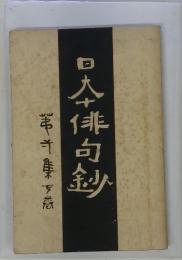 日本俳句鈔
第 集